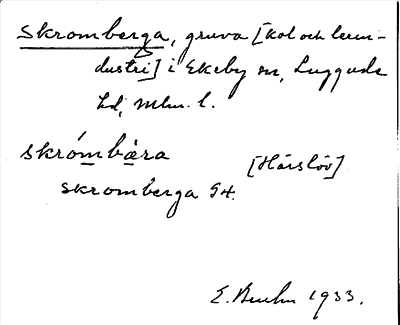 Skromberga, gruva [kol och lerin-
dustri] i Ekeby sn, Luggude
hd, Mlm. l.
skrómbæ̀ra
[Härslöv]
skromberga 94.
E. Bruhn 1933.